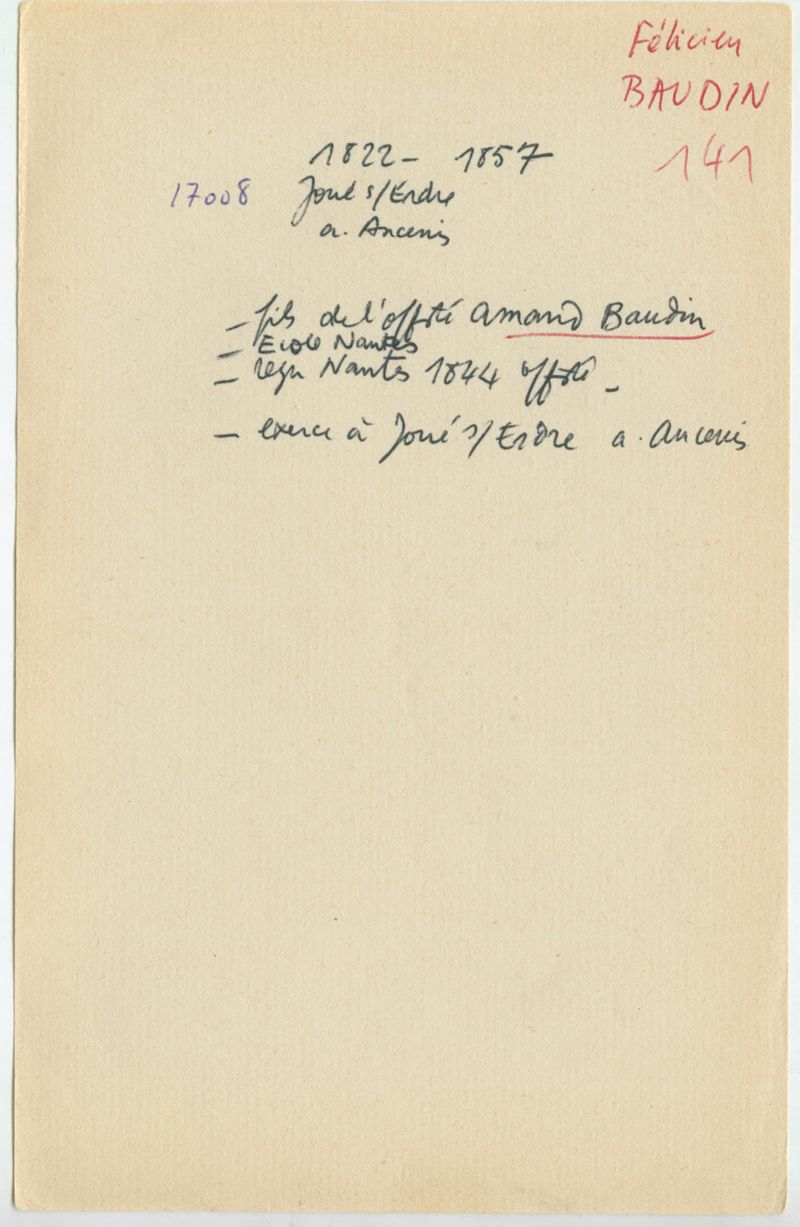 Félicien
BAUDIN
141
1822 - 1857
17008 Joué s/Erdre
a. Ancenis
- fils de l'offté Amand Baudin
- Ecole Nantes
- reçu Nantes 1844 offté -
- exerce à Joué s/Erdre a. Ancenis